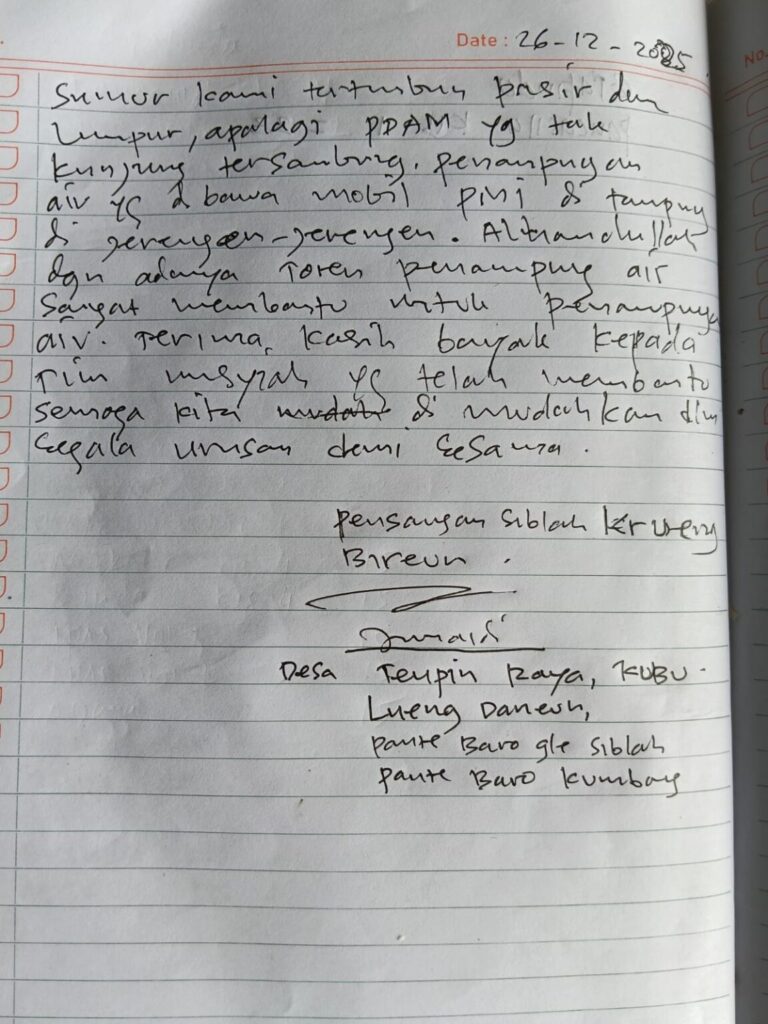 Date : 26-12-2025
No.
Sumur kami tertimbun pasir dan
Lumpur, apalagi PDAM yg tak
kunjung tersambung. penampungan
air yg dibawa mobil PMI di tampung
di jerengen-jerengen. Alhamdulillah
dgn adanya Toren penampung air
sangat membantu untuk penampungan
air. Terima kasih banyak kepada
Tim yg telah membantu
semoga kita mudah di mudahkan dlm
segala urusan demi sesama.
peusangan siblah krueng
Bireun.
Junaidi
Desa Teupin Raya, KUBU
Lueng Daneun,
pante Baro gle siblah
pante Baro kumbang